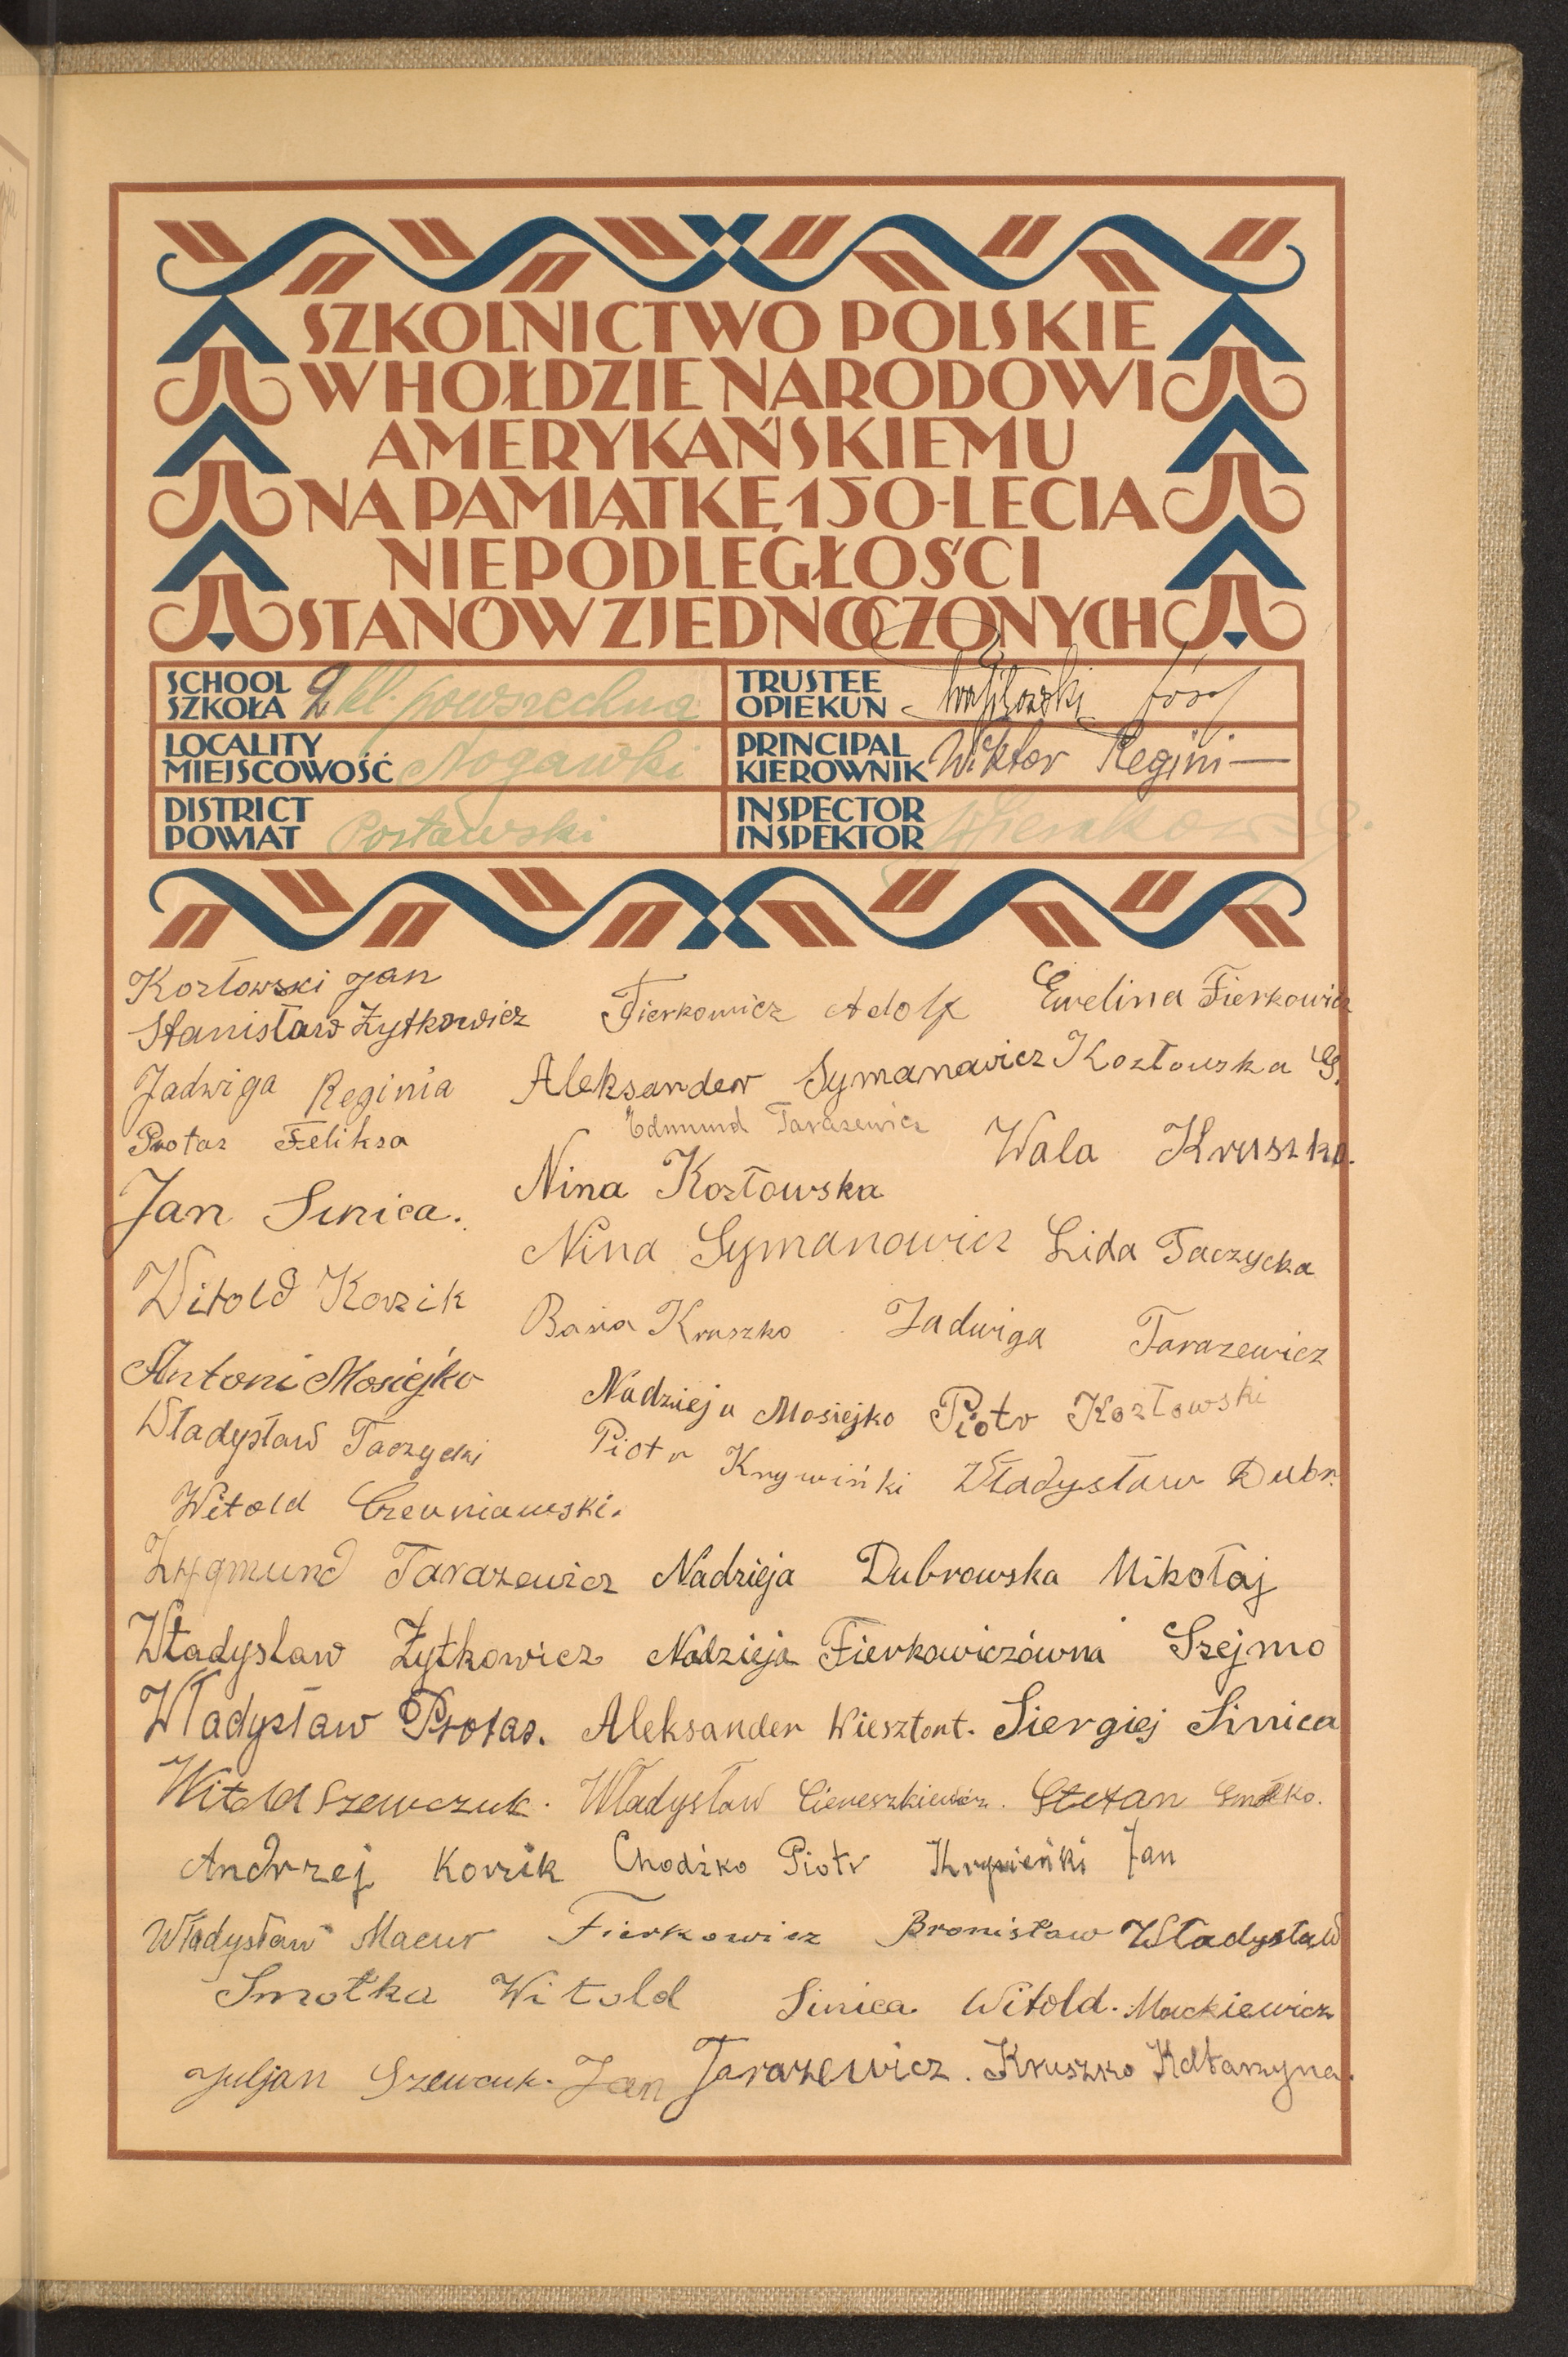 SZKOLNICTWO POLSKIE
W HOŁDZIE NARODOWI
AMERYKAŃSKIEMU
NA PAMIĄTKĘ 150-LECIA
NIEPODLEGŁOŚCI
STANÓW ZJEDNOCZONYCH
SCHOOL
SZKOŁA 2 kl. powszechna
TRUSTEE
OPIEKUN Józef
LOCALITY
MIEJSCOWOŚĆ Nogawki
PRINCIPAL
KIEROWNIK Wiktor Regini
DISTRICT
POWIAT Postawski
INSPECTOR
INSPEKTOR
Kozłowski Jan
Stanisław Żytkowicz Fierkowicz Adolf Ewelina Fierkowicz
Jadwiga Reginia Aleksander Symanowicz Kozłowska G.
Protas Feliksa Edmund Tarazewicz Wala Kruszko.
Jan Sinica. Nina Kozłowska
Nina Symanowicz Lida Taczycka
Witold Korzik Basia Kruszko Jadwiga Tarazewicz
Antoni Mosiejko Nadzieja Mosiejko Piotr Kozłowski
Władysław Taczycki Piotr Krywiński Władysław Dubr.
Witold Czerniawski.
Zygmund Tarazewicz Nadzieja Dubrowska Mikołaj
Władysław Żytkowicz Nadzieja Fierkowiczówna Szejmo
Władysław Protas. Aleksander Wiesztort. Siergiej Sinica
Witold Szewczuk. Władysław Ciereszkiewicz. Stefan Smołko.
Andrzej Korzik Chodźko Piotr Jan
Władysław Macur Fierkowicz Bronisław Władysław
Smotka Witold Sinica Witold. Mackiewicz
Juljan Szewcuk. Jan Tarazewicz. Kruszko Katarzyna.